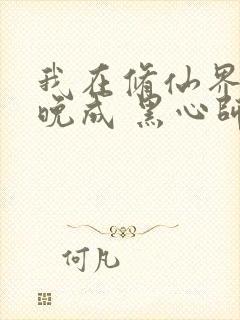 我在修仙界
晚成 黑心師
何凡